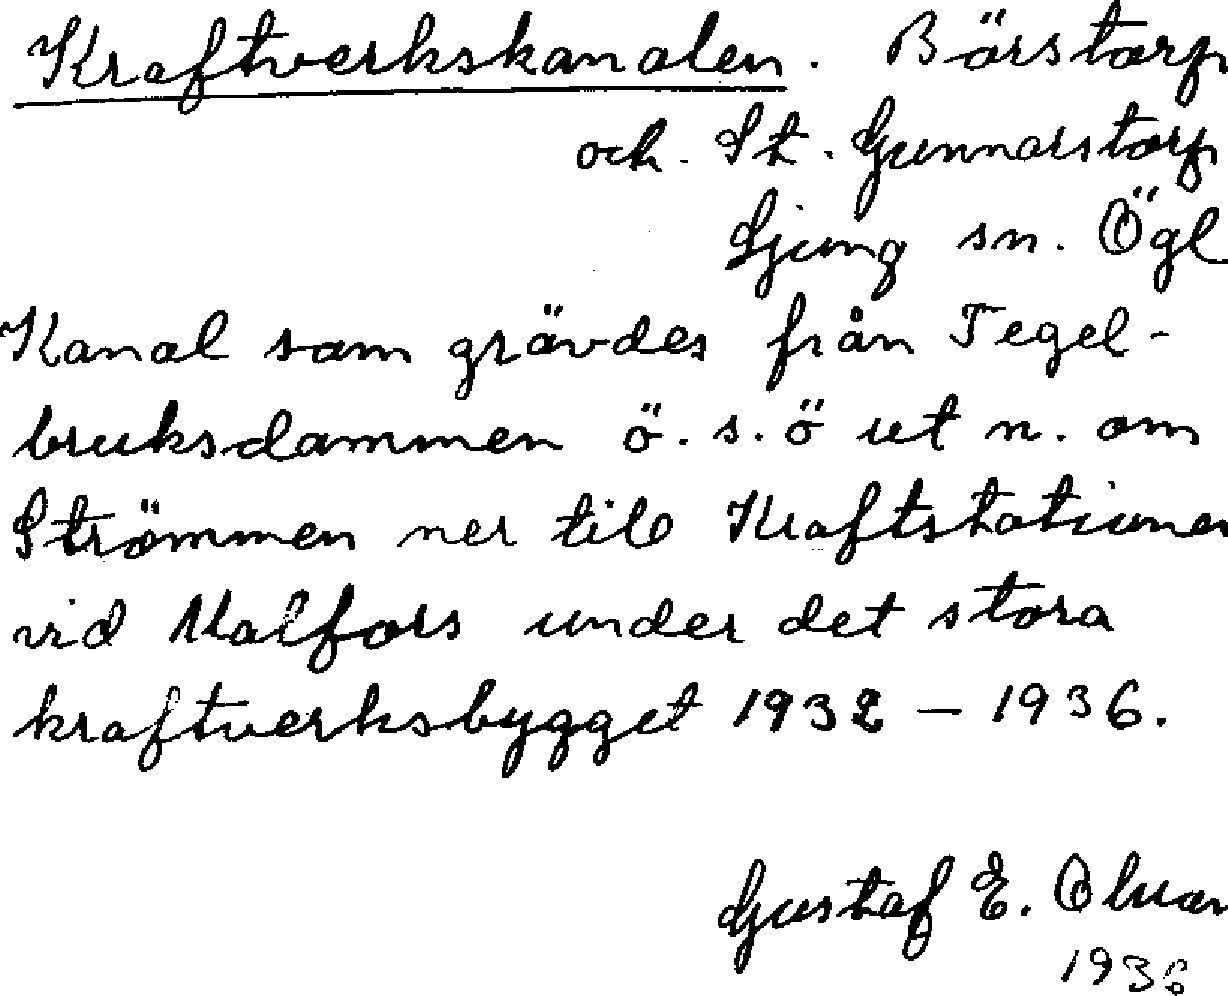 Kraftverkskanalen. Börstorp
och. St. Gunnarstorp
Ljung sn. Ögl
Kanal som grävdes från Tegel-
bruksdammen ö. s. ö ut n. om
Strömmen ner till Kraftstationen
vid Malfors under det stora
kraftverksbygget 1932 – 1936.
Gustaf E.
1936